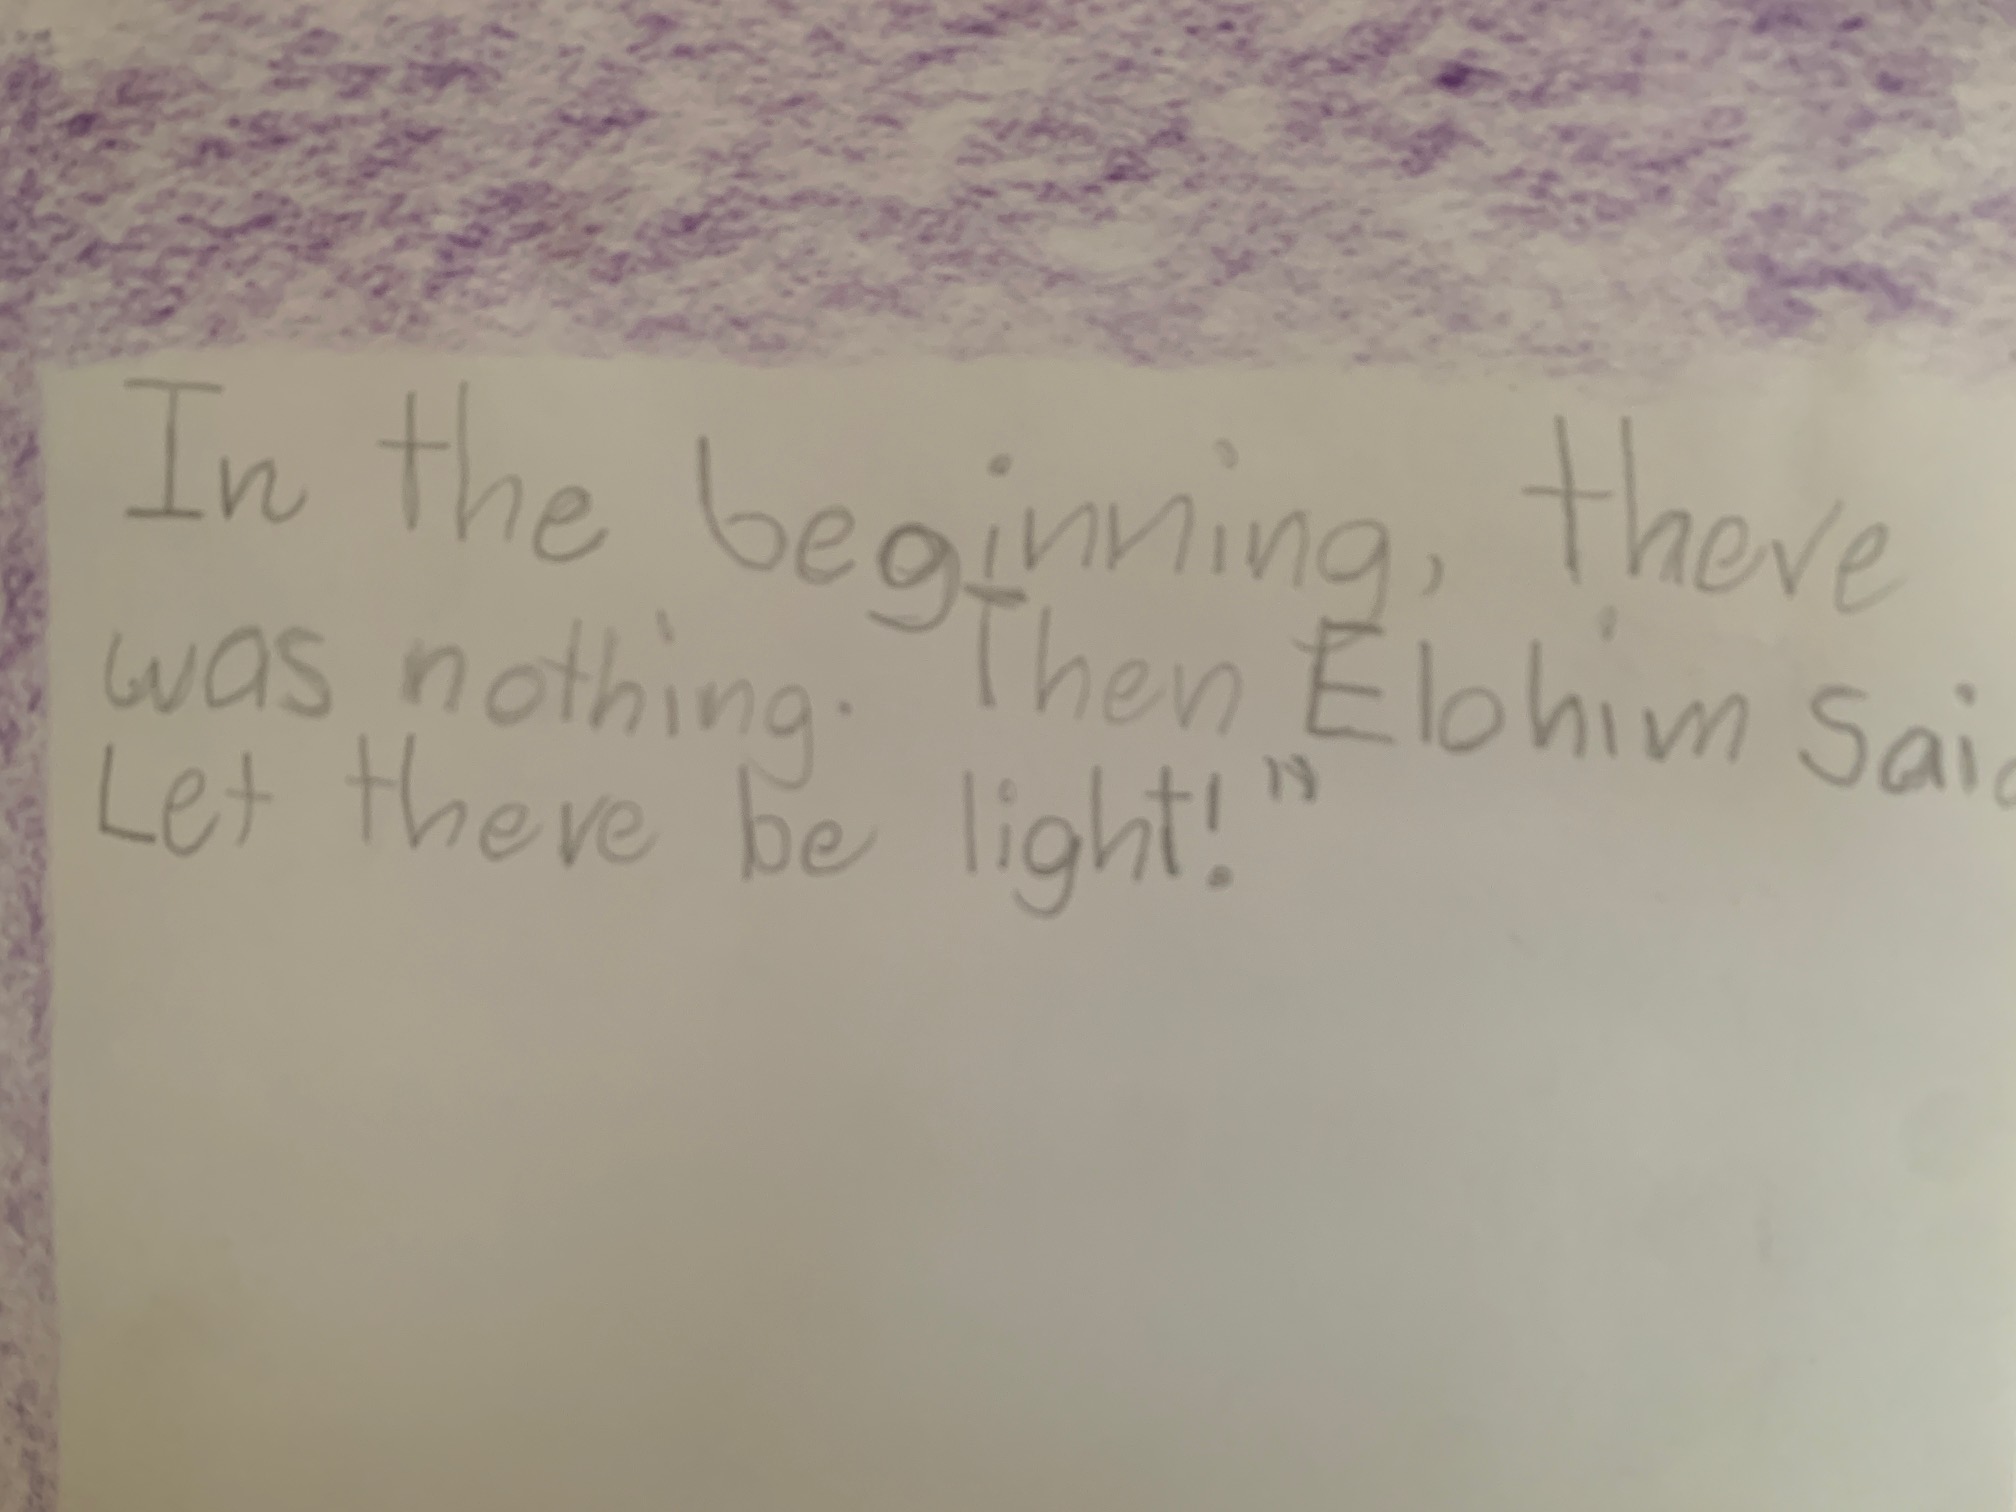 In the beginning, there
was nothing. Then Elohim Said
Let there be light!"